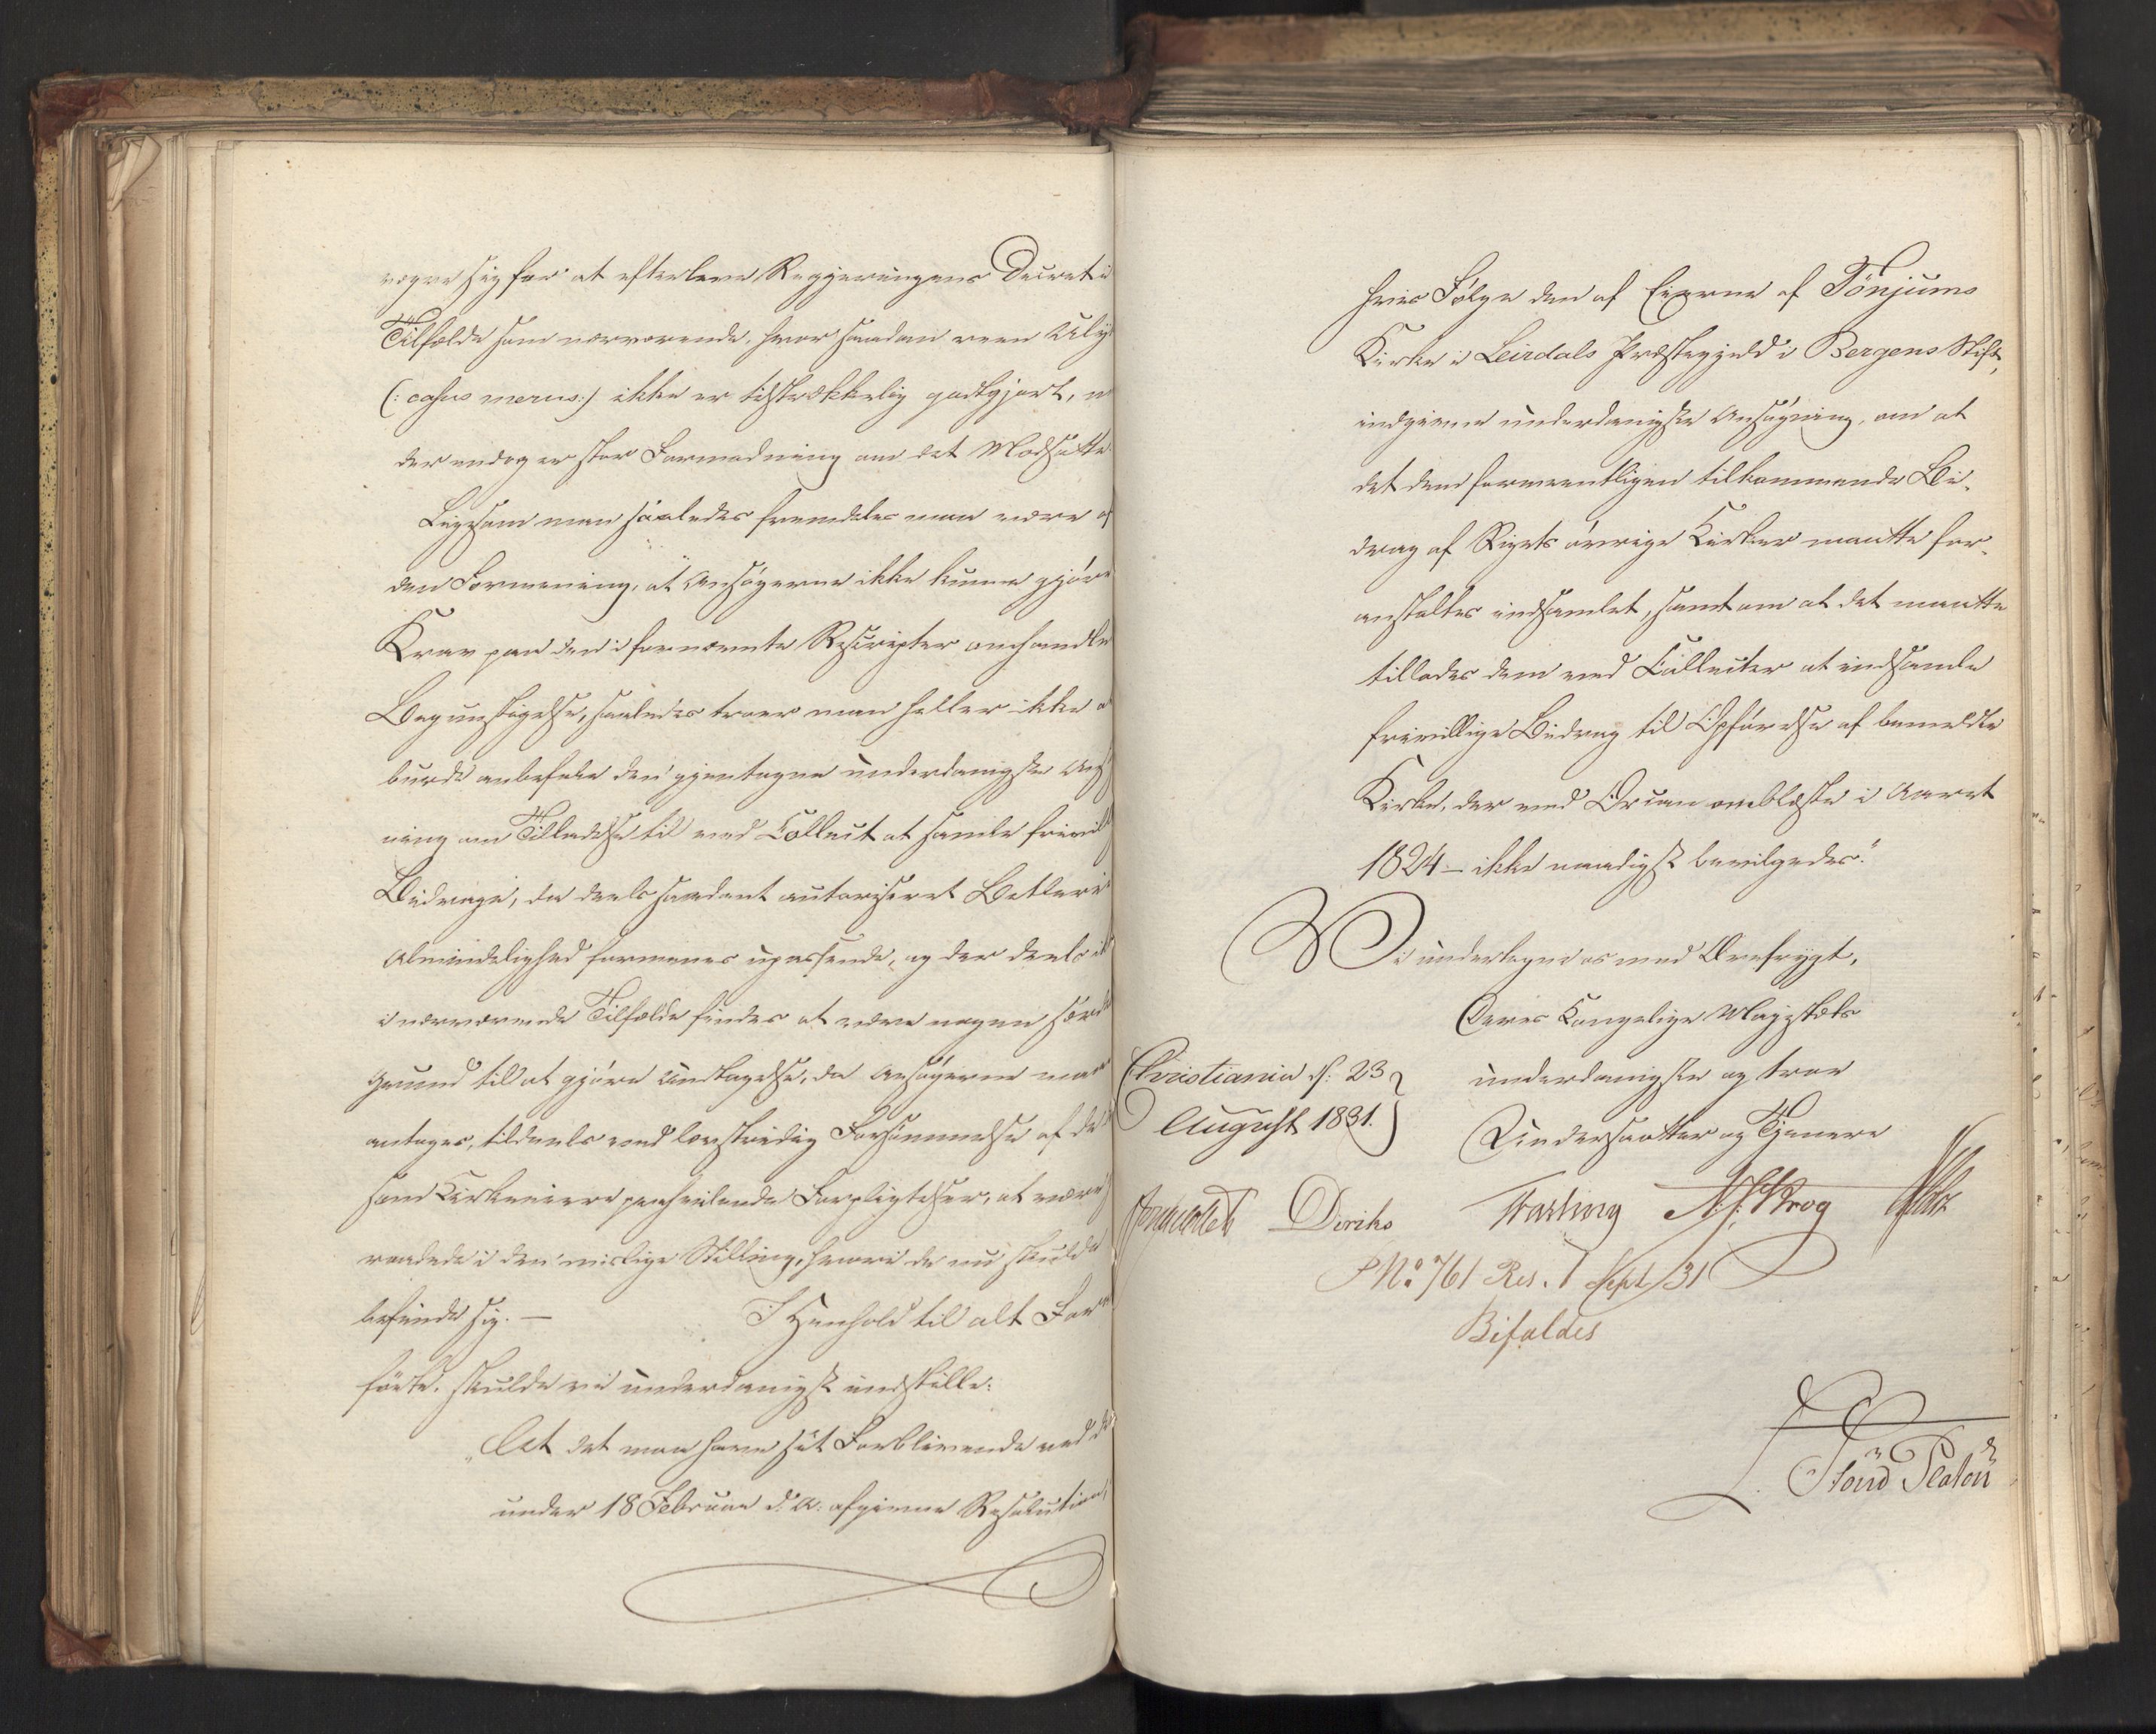 vægre sig for at efterleve Regjeringens Decret i
Tilfælde som nærværende, hvor saadan reen Uly
(: casus merus:) ikke er tilstrækkelig godtgjort, m
der endog er stor Formodning om det Modsatte.
Ligesom man saaledes fremdeles maa være af
den Formening, at Ansøgerne ikke kunne gjøre
Krav paa den i fornævnte Rescripter omhandle
Begunstigelse, saaledes troer man heller ikke a
burde anbefale den gjentagne underdanigste Ans
ning om Tilladelse til ved Collect at samle frivil
Bidrage, da deels saadant autoriseret Betleri i
Almindelighed formenes upassende, og der deels ik
i nærværende Tilfælde findes at være nogen særd
Grund til at gjøre Undtagelse, da Ansøgerne maa
antages, tildeels ved lovstridig Forsømmelse af de
som Kirkeeiere paahvilende Forpligtelser, at være
raadede i den mislige Stilling, hvori de nu skulde
befinde sig. — I Henhold til alt For
førte, skulde vi underdanigst indstille:
„At det maa have sit Forblivende ved d
under 18 Februar d. A. afgivne Resolution,
hvis Følge den af Eierne af Tönjums
Kirke i Leirdals Præstegjeld i Bergens Stift,
indgivne underdanigste Ansøgning, om at
det dem formeentligen tilkommende Bi-
drag af Rigets øvrige Kirker maatte for-
anstaltes indsamlet, samt om at det maatte
tillades dem ved Collecter at indsamle
frivillige Bidrag til Opførelse af bemeldte
Kirke, der ved Orcan omblæste i Aaret
1824 – ikke naadigst bevilgedes."
Vi undertegne os med Ærefrygt,
Deres Kongelige Majestæts
Christiania d: 23 underdanigste og troe
August 1831. Undersaatter og Tjenere
Diriks Fasting Krog
P No 761 Res. 1 Sept 31
Bifaldes